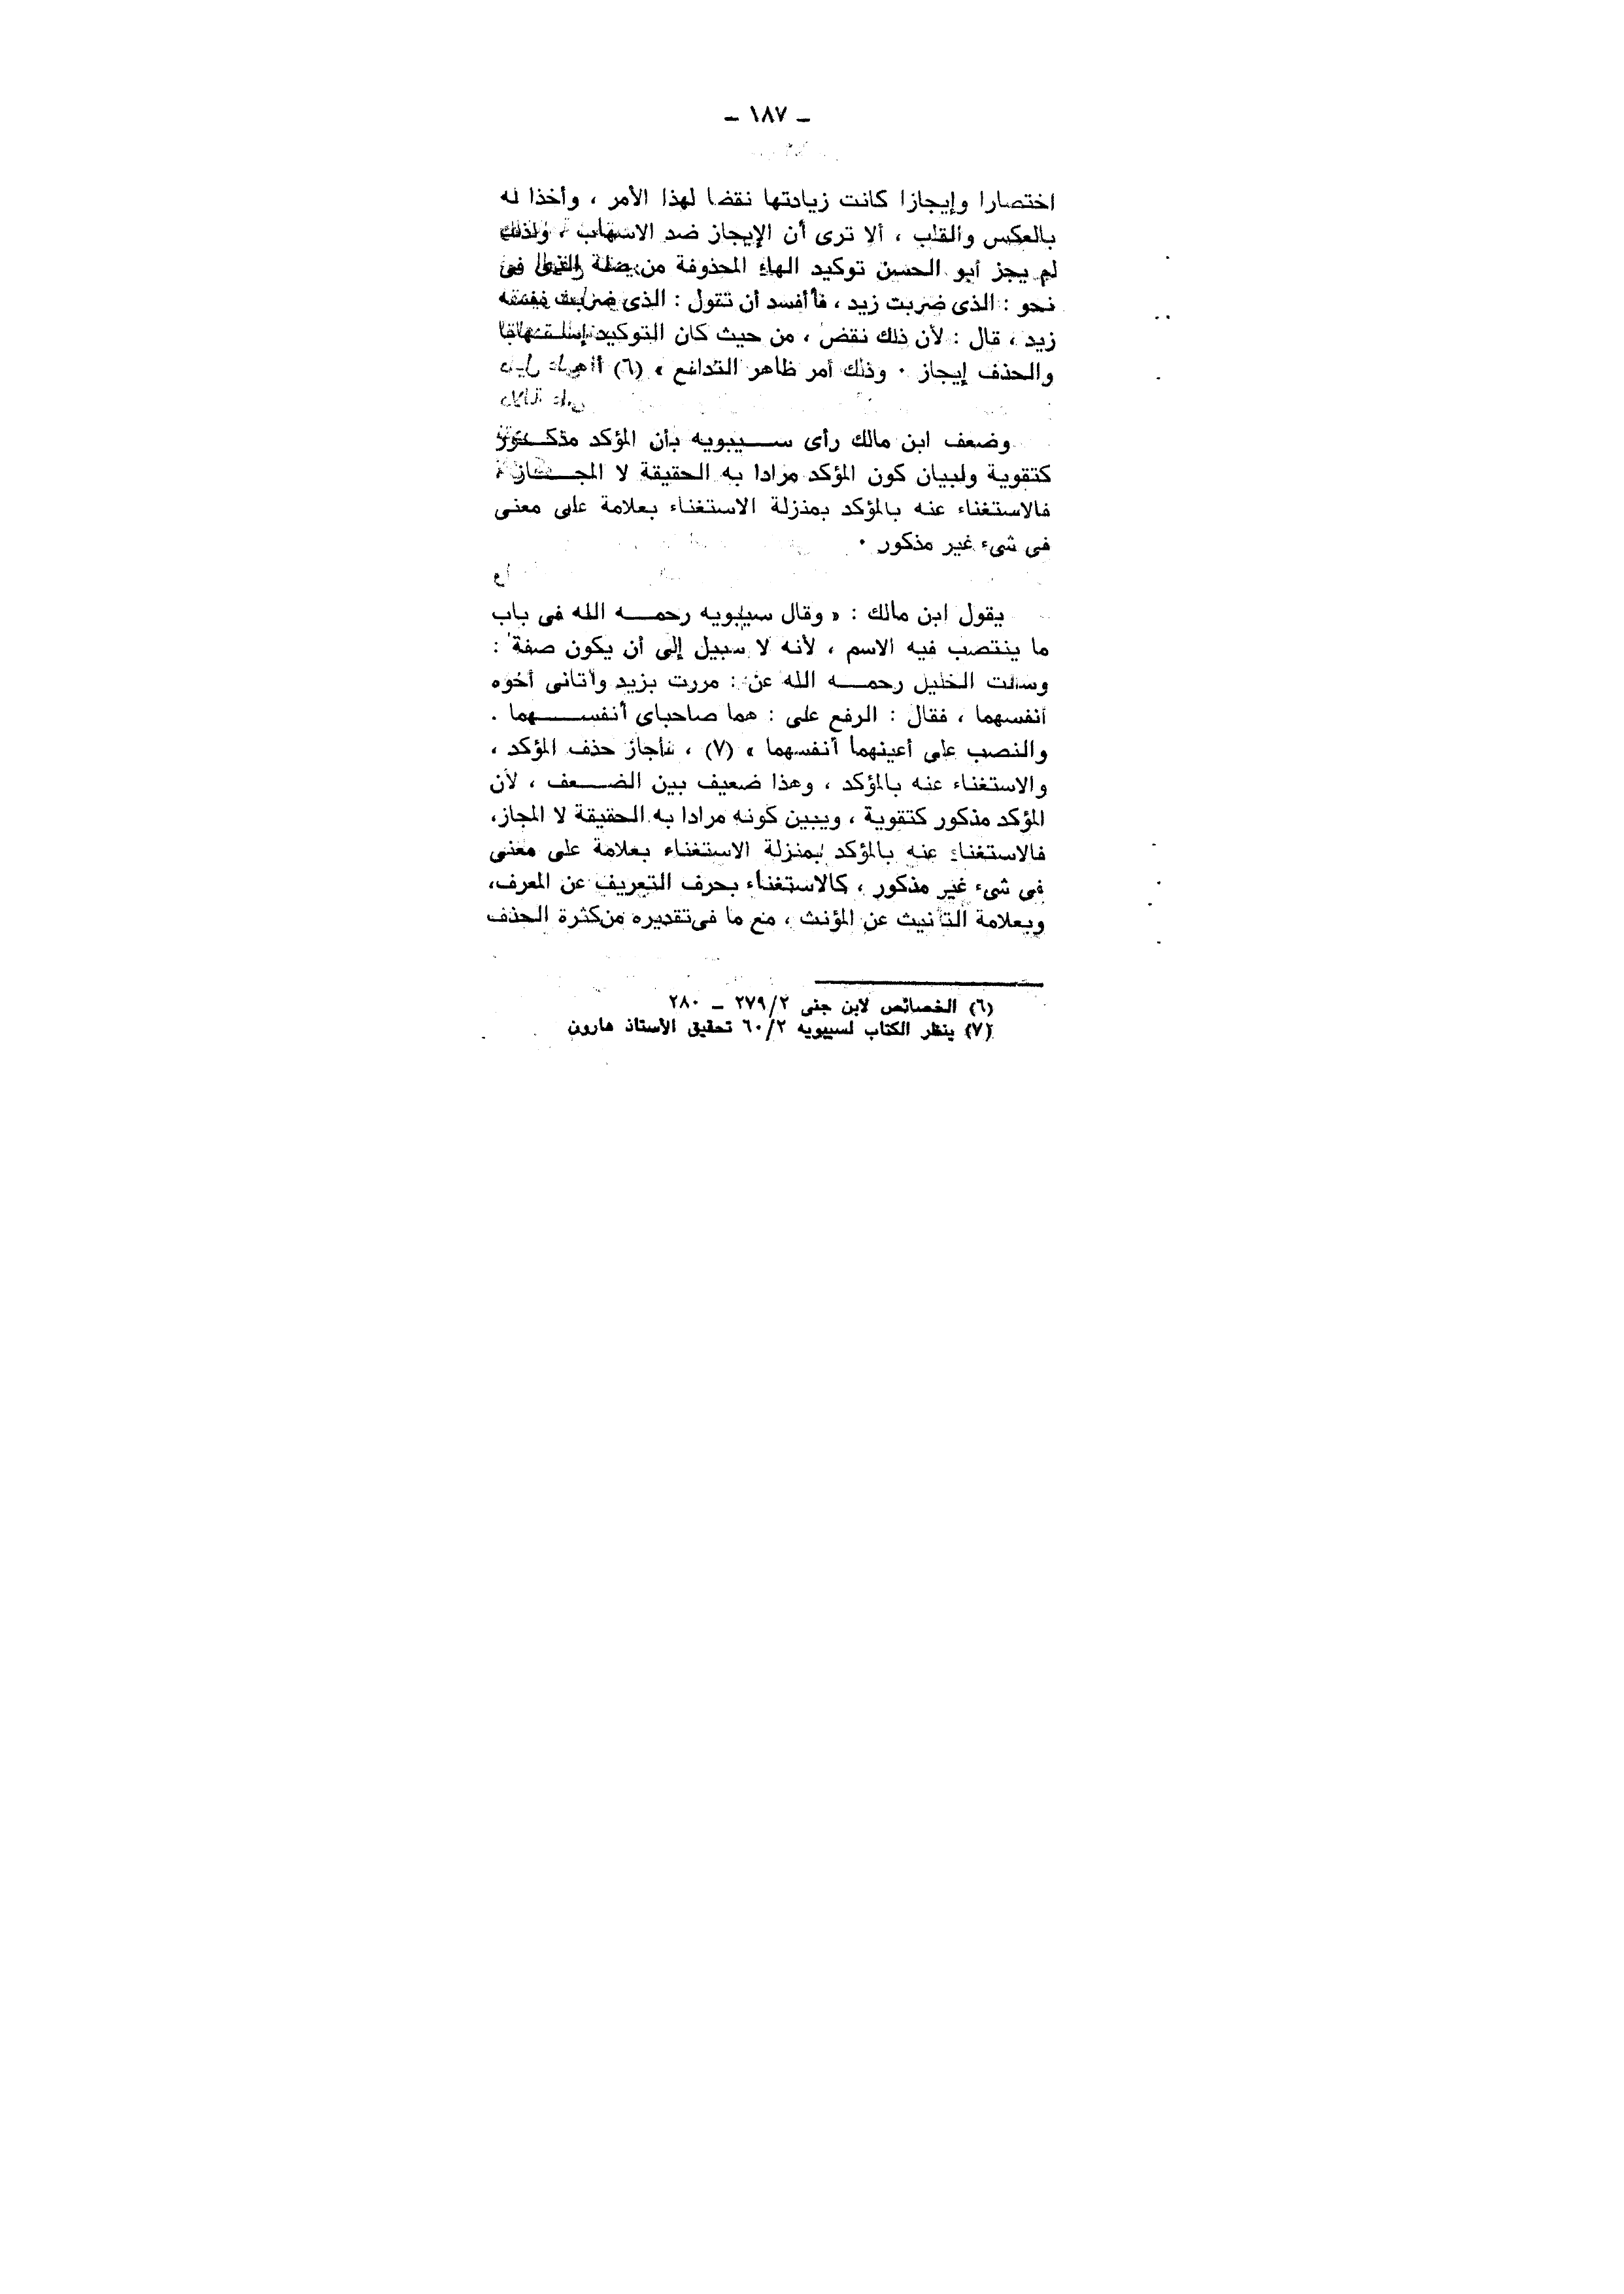 ـ ١٨٧ ـ
اختصارا وإيجازا كانت زيادتها نقضا لهذا الأمر ، وأخذا له
بالعكس والقلب ، ألا ترى أن الإيجاز ضد الاسهاب ، ولذلك
لم يجز أبو الحسن توكيد الهاء المحذوفة من صلة الذى فى
نحو : الذى ضربت زيد ، فأفسد أن تقول : الذى ضربت نفسه
زيد ، قال : لأن ذلك نقض ، من حيث كان التوكيد إسهابا
والحذف إيجاز ٠ وذلك أمر ظاهر التدافع » (٦)
وضعف ابن مالك رأى ســـيبويه بأن المؤكد مذكـــور
كتقوية ولبيان كون المؤكد مرادا به الحقيقة لا المجـــاز ،
فالاستغناء عنه بالمؤكد بمنزلة الاستغناء بعلامة على معنى
فى شىء غير مذكور ٠
يقول ابن مالك : « وقال سيبويه رحمـــه الله فى باب
ما ينتصب فيه الاسم ، لأنه لا سبيل إلى أن يكون صفة :
وسألت الخليل رحمـــه الله عن : مررت بزيد وأتانى أخوه
أنفسهما ، فقال : الرفع على : هما صاحباى أنفســـهما .
والنصب على أعينهما أنفسهما » (٧) ، فأجاز حذف المؤكد ،
والاستغناء عنه بالمؤكد ، وهذا ضعيف بين الضـــعف ، لأن
المؤكد مذكور كتقوية ، ويبين كونه مرادا به الحقيقة لا المجاز،
فالاستغناء عنه بالمؤكد بمنزلة الاستغناء بعلامة على معنى
فى شىء غير مذكور ، كالاستغناء بحرف التعريف عن المعرف،
وبعلامة التأنيث عن المؤنث ، مع ما فى تقديره من كثرة الحذف
(٦) الخصائص لابن جنى ٢/٢٧٩ ـ ٢٨٠
(٧) ينظر الكتاب لسيبويه ٢/٦٠ تحقيق الأستاذ هارون